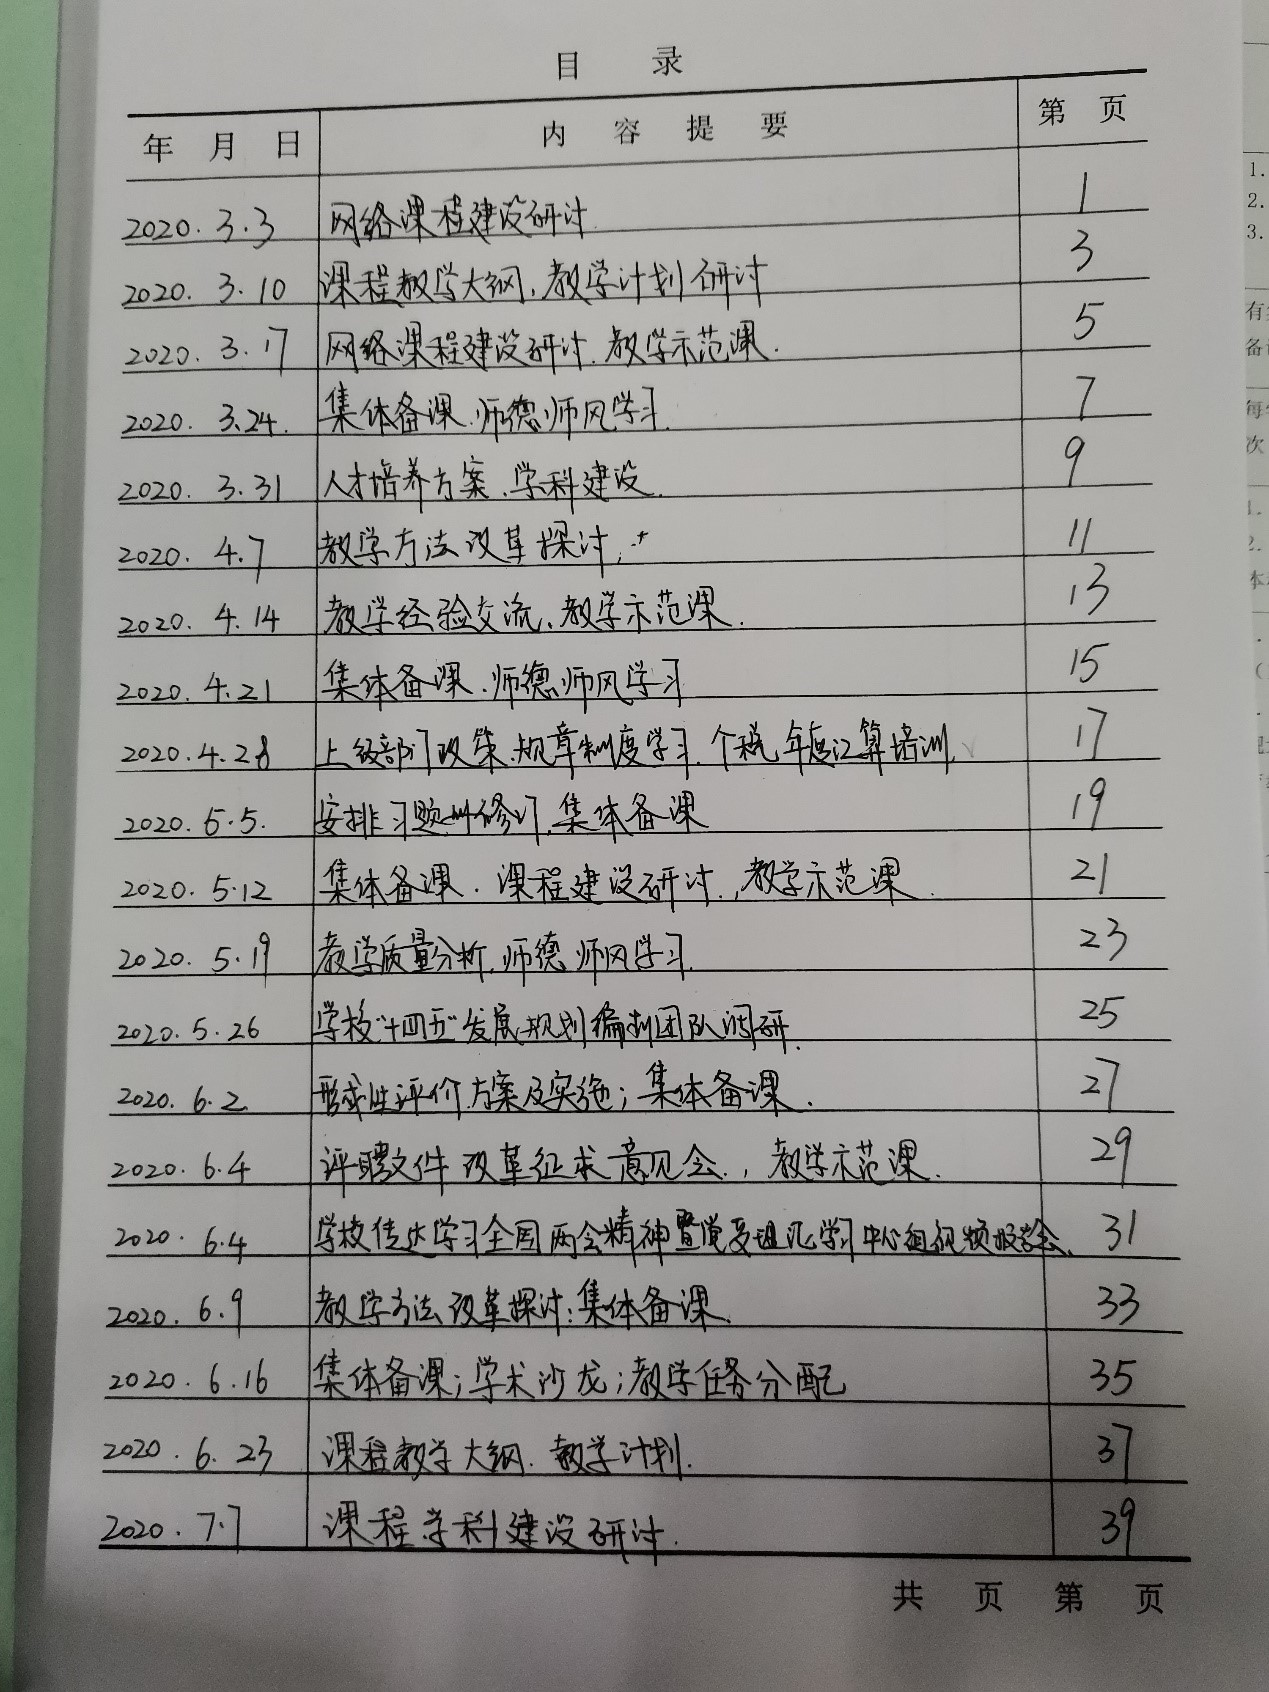 目 录
年 月 日 内 容 提 要 第 页
2020. 3. 3 网络课程建设研讨 1
2020. 3. 10 课程教学大纲、教学计划研讨 3
2020. 3. 17 网络课程建设研讨、教学示范课. 5
2020. 3.24. 集体备课、师德师风学习. 7
2020. 3. 31 人才培养方案、学科建设. 9
2020. 4.7 教学方法改革探讨; 11
2020. 4. 14 教学经验交流、教学示范课. 13
2020. 4.21 集体备课、师德师风学习 15
2020. 4. 28 上级部门政策、规章制度学习、个税年度汇算培训. 17
2020. 5.5. 安排习题册修订、集体备课 19
2020. 5.12 集体备课. 课程建设研讨., 教学示范课. 21
2020. 5.19 教学质量分析、师德师风学习. 23
2020. 5. 26 学校“十四五”发展规划编制团队调研. 25
2020. 6.2 形成性评价方案及实施; 集体备课. 27
2020. 6.4 评聘文件改革征求意见会., 教学示范课. 29
2020. 6.4 学校传达学习全国两会精神暨党委理论学习中心组视频报告会. 31
2020. 6. 9 教学方法改革探讨; 集体备课. 33
2020. 6.16 集体备课; 学术沙龙; 教学任务分配 35
2020. 6. 23 课程教学大纲. 教学计划. 37
2020. 7.7 课程学科建设研讨. 39
共 页 第 页
1.
2.
3.